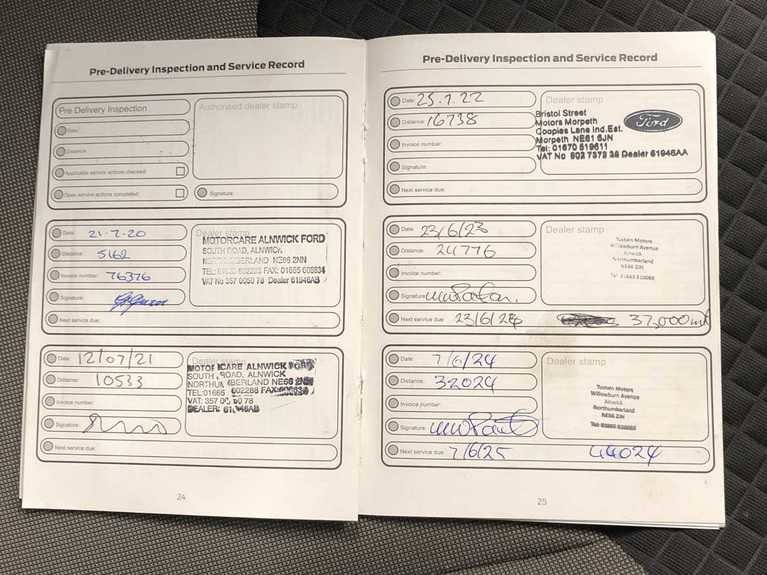 Pre-Delivery Inspection and Service Record
Pre Delivery Inspection
Authorised dealer stamp
Date:
Distance:
Applicable service actions checked
Open service actions completed
Signature:
Date: 21-7-20
Distance: 5162
Invoice number: 76376
Signature:
Next service due:
Dealer stamp
MOTORCARE ALNWICK FORD
SOUTH ROAD, ALNWICK
NORTHUMBERLAND NE66 2NN
VAT No 357 0050 78 Dealer 61946AB
Date: 12/07/21
Distance: 10533
Invoice number:
Signature:
Next service due:
Dealer stamp
MOTORCARE ALNWICK FORD
SOUTH ROAD, ALNWICK
NORTHUMBERLAND NE66 2NN
TEL:01665 602288 FAX:
VAT: 357 00 50 78
DEALER: 61946AB
24
Pre-Delivery Inspection and Service Record
Date: 25.7.22
Distance: 16738
Invoice number:
Signature:
Next service due:
Dealer stamp
Bristol Street
Motors Morpeth
Coopies Lane Ind.Est.
Morpeth NE61 6JN
Tel: 01670 519611
VAT No 902 7372 38 Dealer 61946AA
Ford
Date: 23/6/23
Distance: 24776
Invoice number:
Signature:
Next service due: 23/6/24 37,000
Dealer stamp
Motors
Willowburn Avenue
Alnwick
Northumberland
NE66 2JN
Date: 7/6/24
Distance: 32024
Invoice number:
Signature:
Next service due: 7/6/25 44024
Dealer stamp
Motors
Willowburn Avenue
Alnwick
Northumberland
NE66 2JN
25